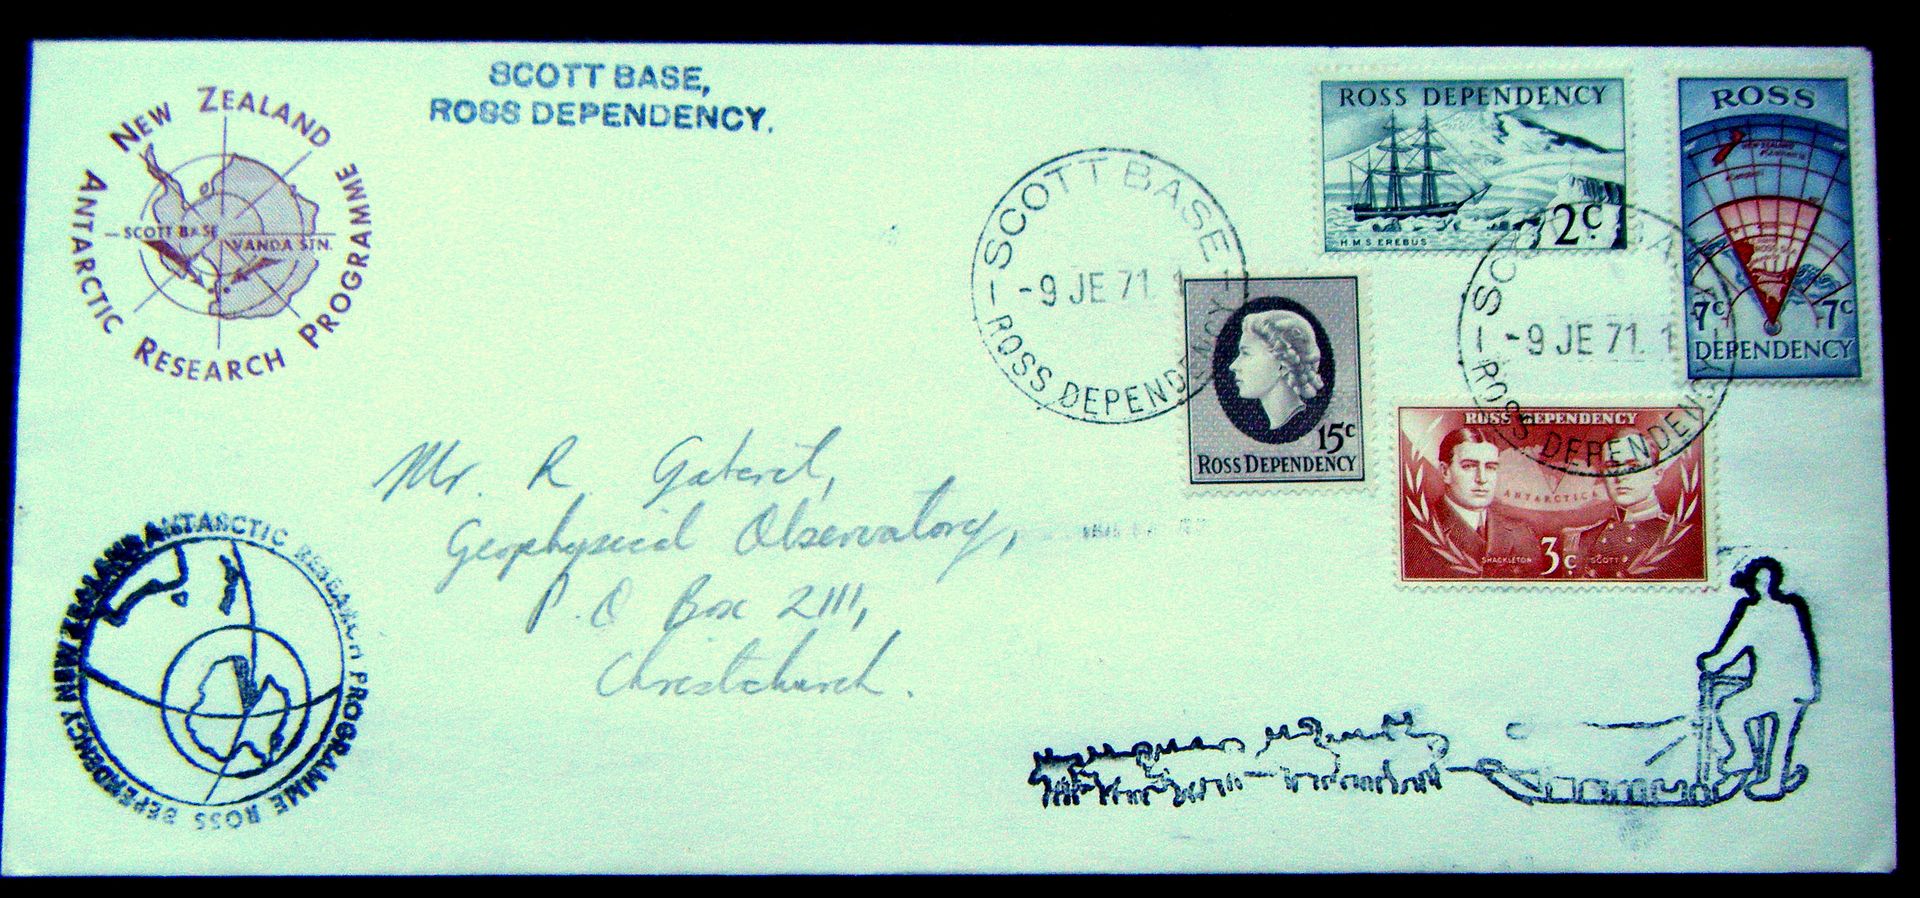 NEW ZEALAND
ANTARCTIC RESEARCH PROGRAMME
SCOTT BASE
VANDA STN.
SCOTT BASE,
ROSS DEPENDENCY.
SCOTT BASE
-9 JE 71. 1
ROSS DEPENDENCY
ROSS DEPENDENCY
H M S EREBUS
2c
ROSS
NEW ZEALAND
7c 7c
DEPENDENCY
15c
ROSS DEPENDENCY
-9 JE 71. 1
ROSS DEPENDENCY
ROSS DEPENDENCY
ANTARCTICA
SHACKLETON 3c SCOTT
Mr. R.
Geophysical Observatory,
P.O Box 2111,
Christchurch.
NEW ZEALAND ANTARCTIC RESEARCH PROGRAMME ROSS DEPENDENCY